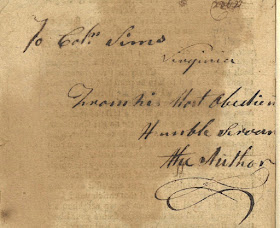 To Col<sup>n</sup>. Sims
Virginia
From his Most Obedien
Humble Servan
the Author